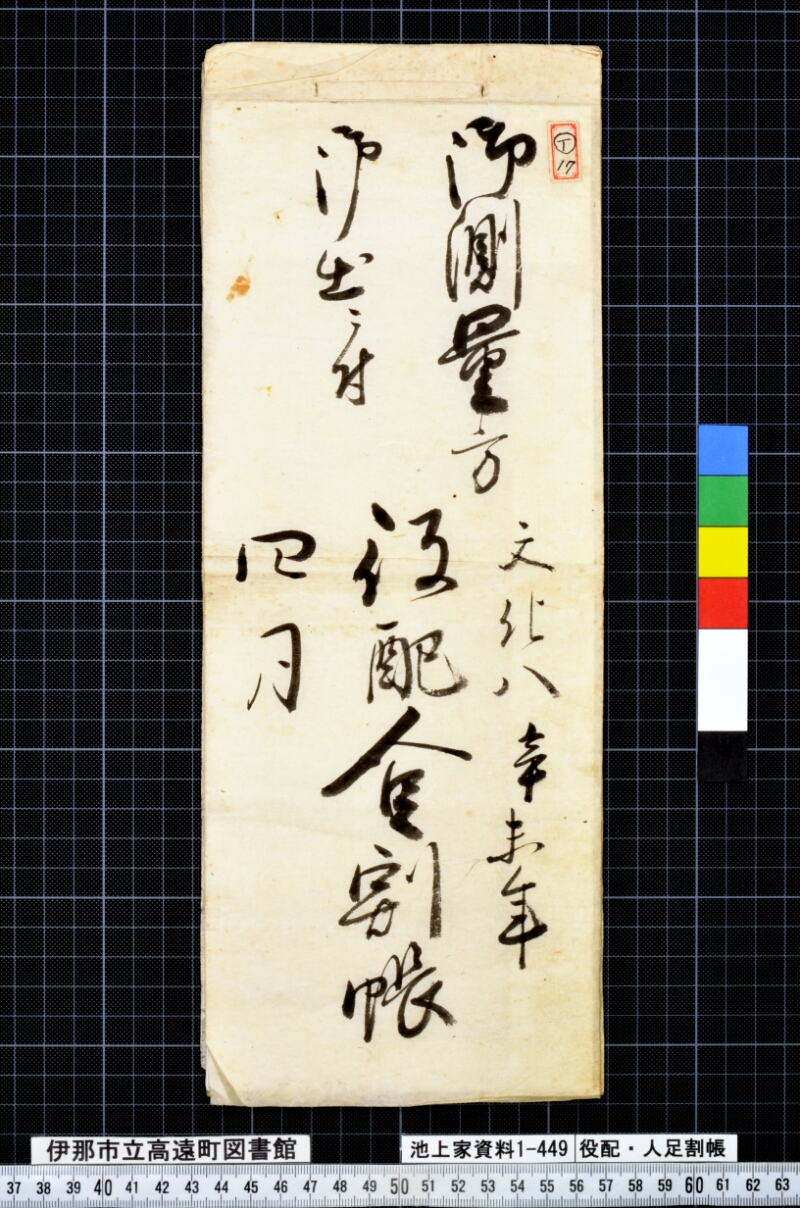 Ⓣ
17
御測量方
御出ニ付
文化八 辛未年
役配人足割帳
四月
伊那市立高遠町図書館
池上家資料1-449 役配・人足割帳
37 38 39 40 41 42 43 44 45 46 47 48 49 50 51 52 53 54 55 56 57 58 59 60 61 62 63